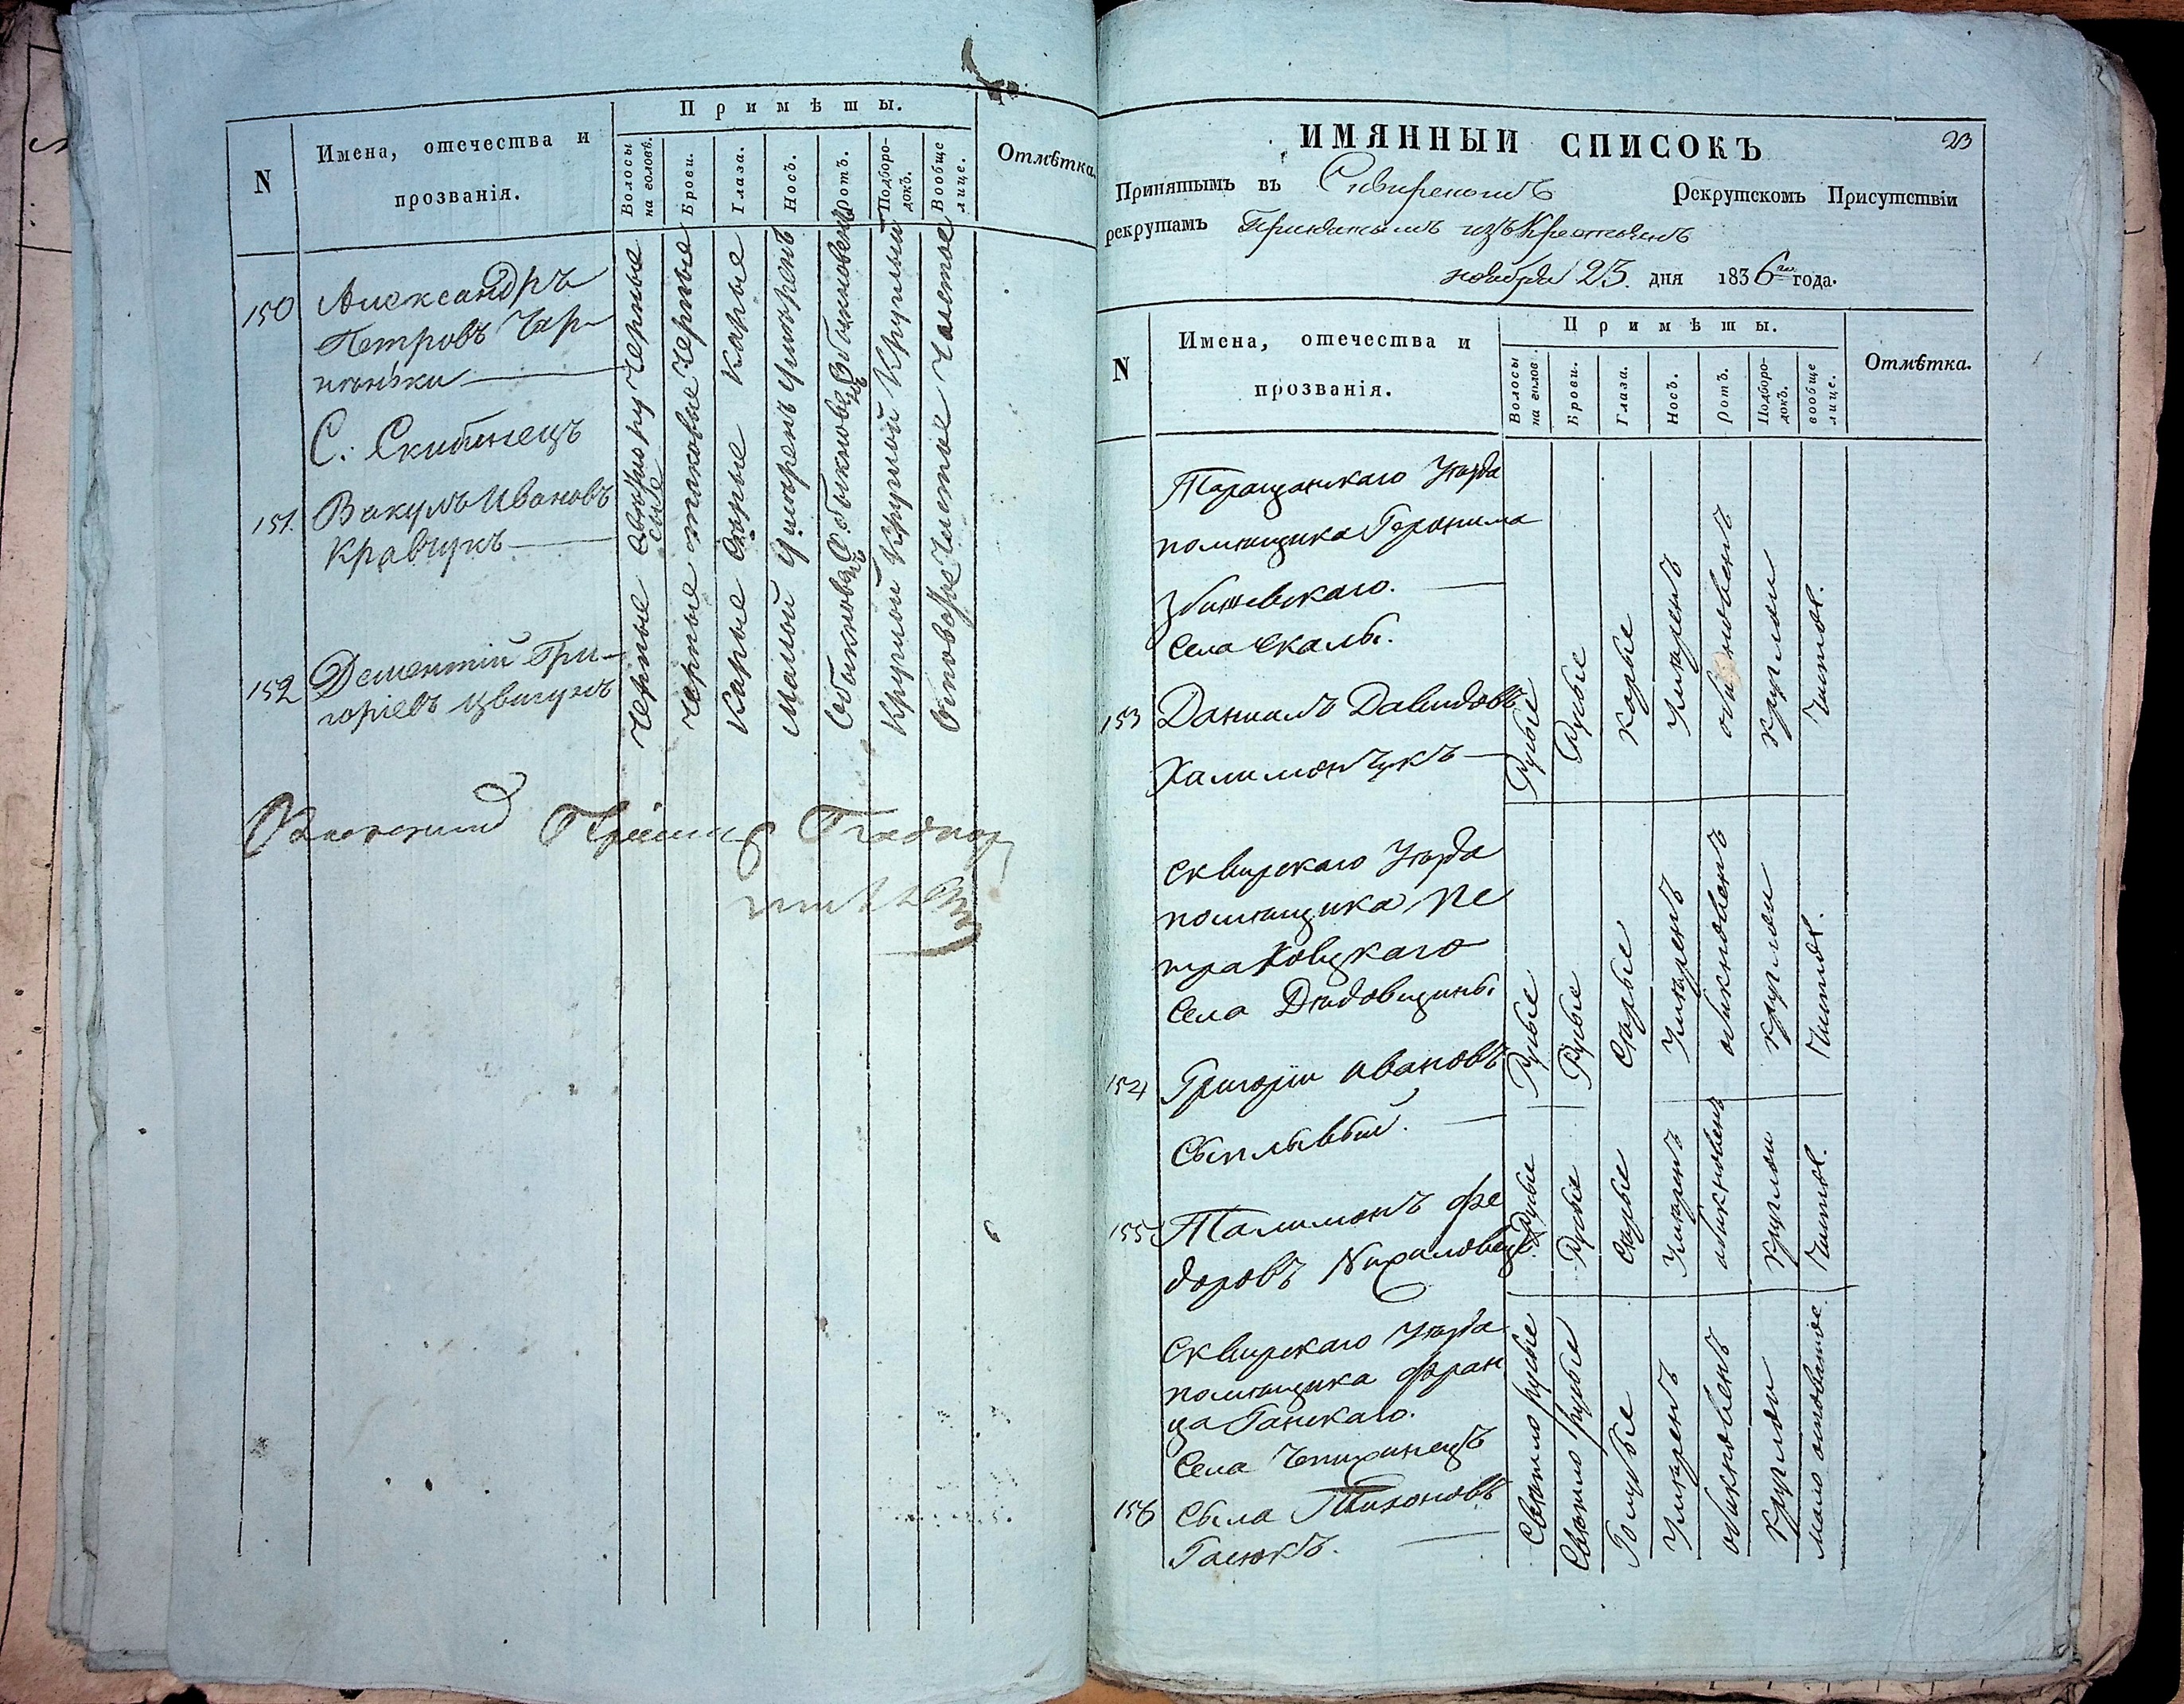 N
Имена, отечества и
прозванія.
Примѣты.
Волосы на головѣ.
Брови.
Глаза.
Носъ.
Ротъ.
Подборо-
докъ.
Вообще
лице.
Отмѣтка.
150 Александръ
Петровъ Чер-
Черные Черные Карые Умѣренъ Обыкновенъ Круглый Чистое
С. Скибинецъ
151. Вакулъ Ивановъ
Кравчукъ
Свѣтлору
сые таковые Сѣрые Умѣренъ Обыкновенъ Круглой Чистое
152 Дементій Гри-
горіевъ Цвигунъ
Черные Черные Карые Малый Обыкновенъ Круглой Осповато
23
ИМЯННЫЙ СПИСОКЪ
Принятымъ въ Сквирскомъ Рекрутскомъ Присутствіи
рекрутамъ Принятымъ изъ Крестьянъ
ноября 23. дня 1836го года.
N
Имена, отечества и
прозванія.
Примѣты.
Волосы
на голов.
Брови.
Глаза.
Носъ.
Ротъ.
Подборо-
докъ.
вообще
лице.
Отмѣтка.
Таращанскаго Уѣзда
помѣщика Геронима
Збишевскаго.
Села Скалы.
153 Даниилъ Давидовъ
Халимончукъ
Русые Русые Карые Умѣренъ обикновенъ круглои Чистое.
Сквирскаго Уѣзда
помѣщика Пе
траковцкаго
Села Дѣдовщины
154 Григории Ивановъ
Сыплывый.
Русые Русые Сѣрые Умѣренъ обикновенъ круглои Чистое.
155 Талимонъ Фе
доровъ
Русые Русые Сѣрые Умѣренъ обикновенъ круглои Чистое.
Сквирскаго Уѣзда
помѣщика Фран
ца Ганскаго.
Села Чепижинецъ
156 Сыла Тихоновъ
Гаѣюкъ.
Свѣтло русые Свѣтло русые Голубые Умѣренъ обикновенъ круглои мало осповатое